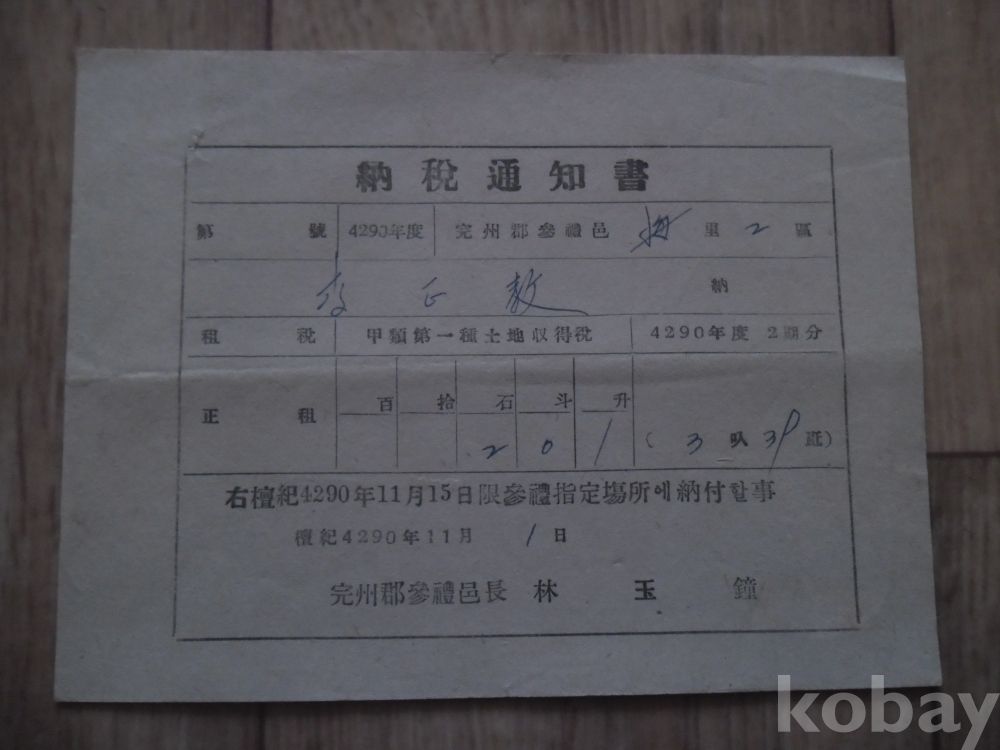 納税通知書
第 號 4290年度 完州郡參禮邑 里 2 區
李 正 敎 納
租 税 甲類第一種土地収得税 4290年度 2期分
正 租 百 拾 石 斗 升
2 0 1 ( 3 叺 39 瓩)
右檀紀4290年11月15日限參禮指定場所에納付할事
檀紀4290年11月 1日
完州郡參禮邑長 林 玉 鐘
kobay